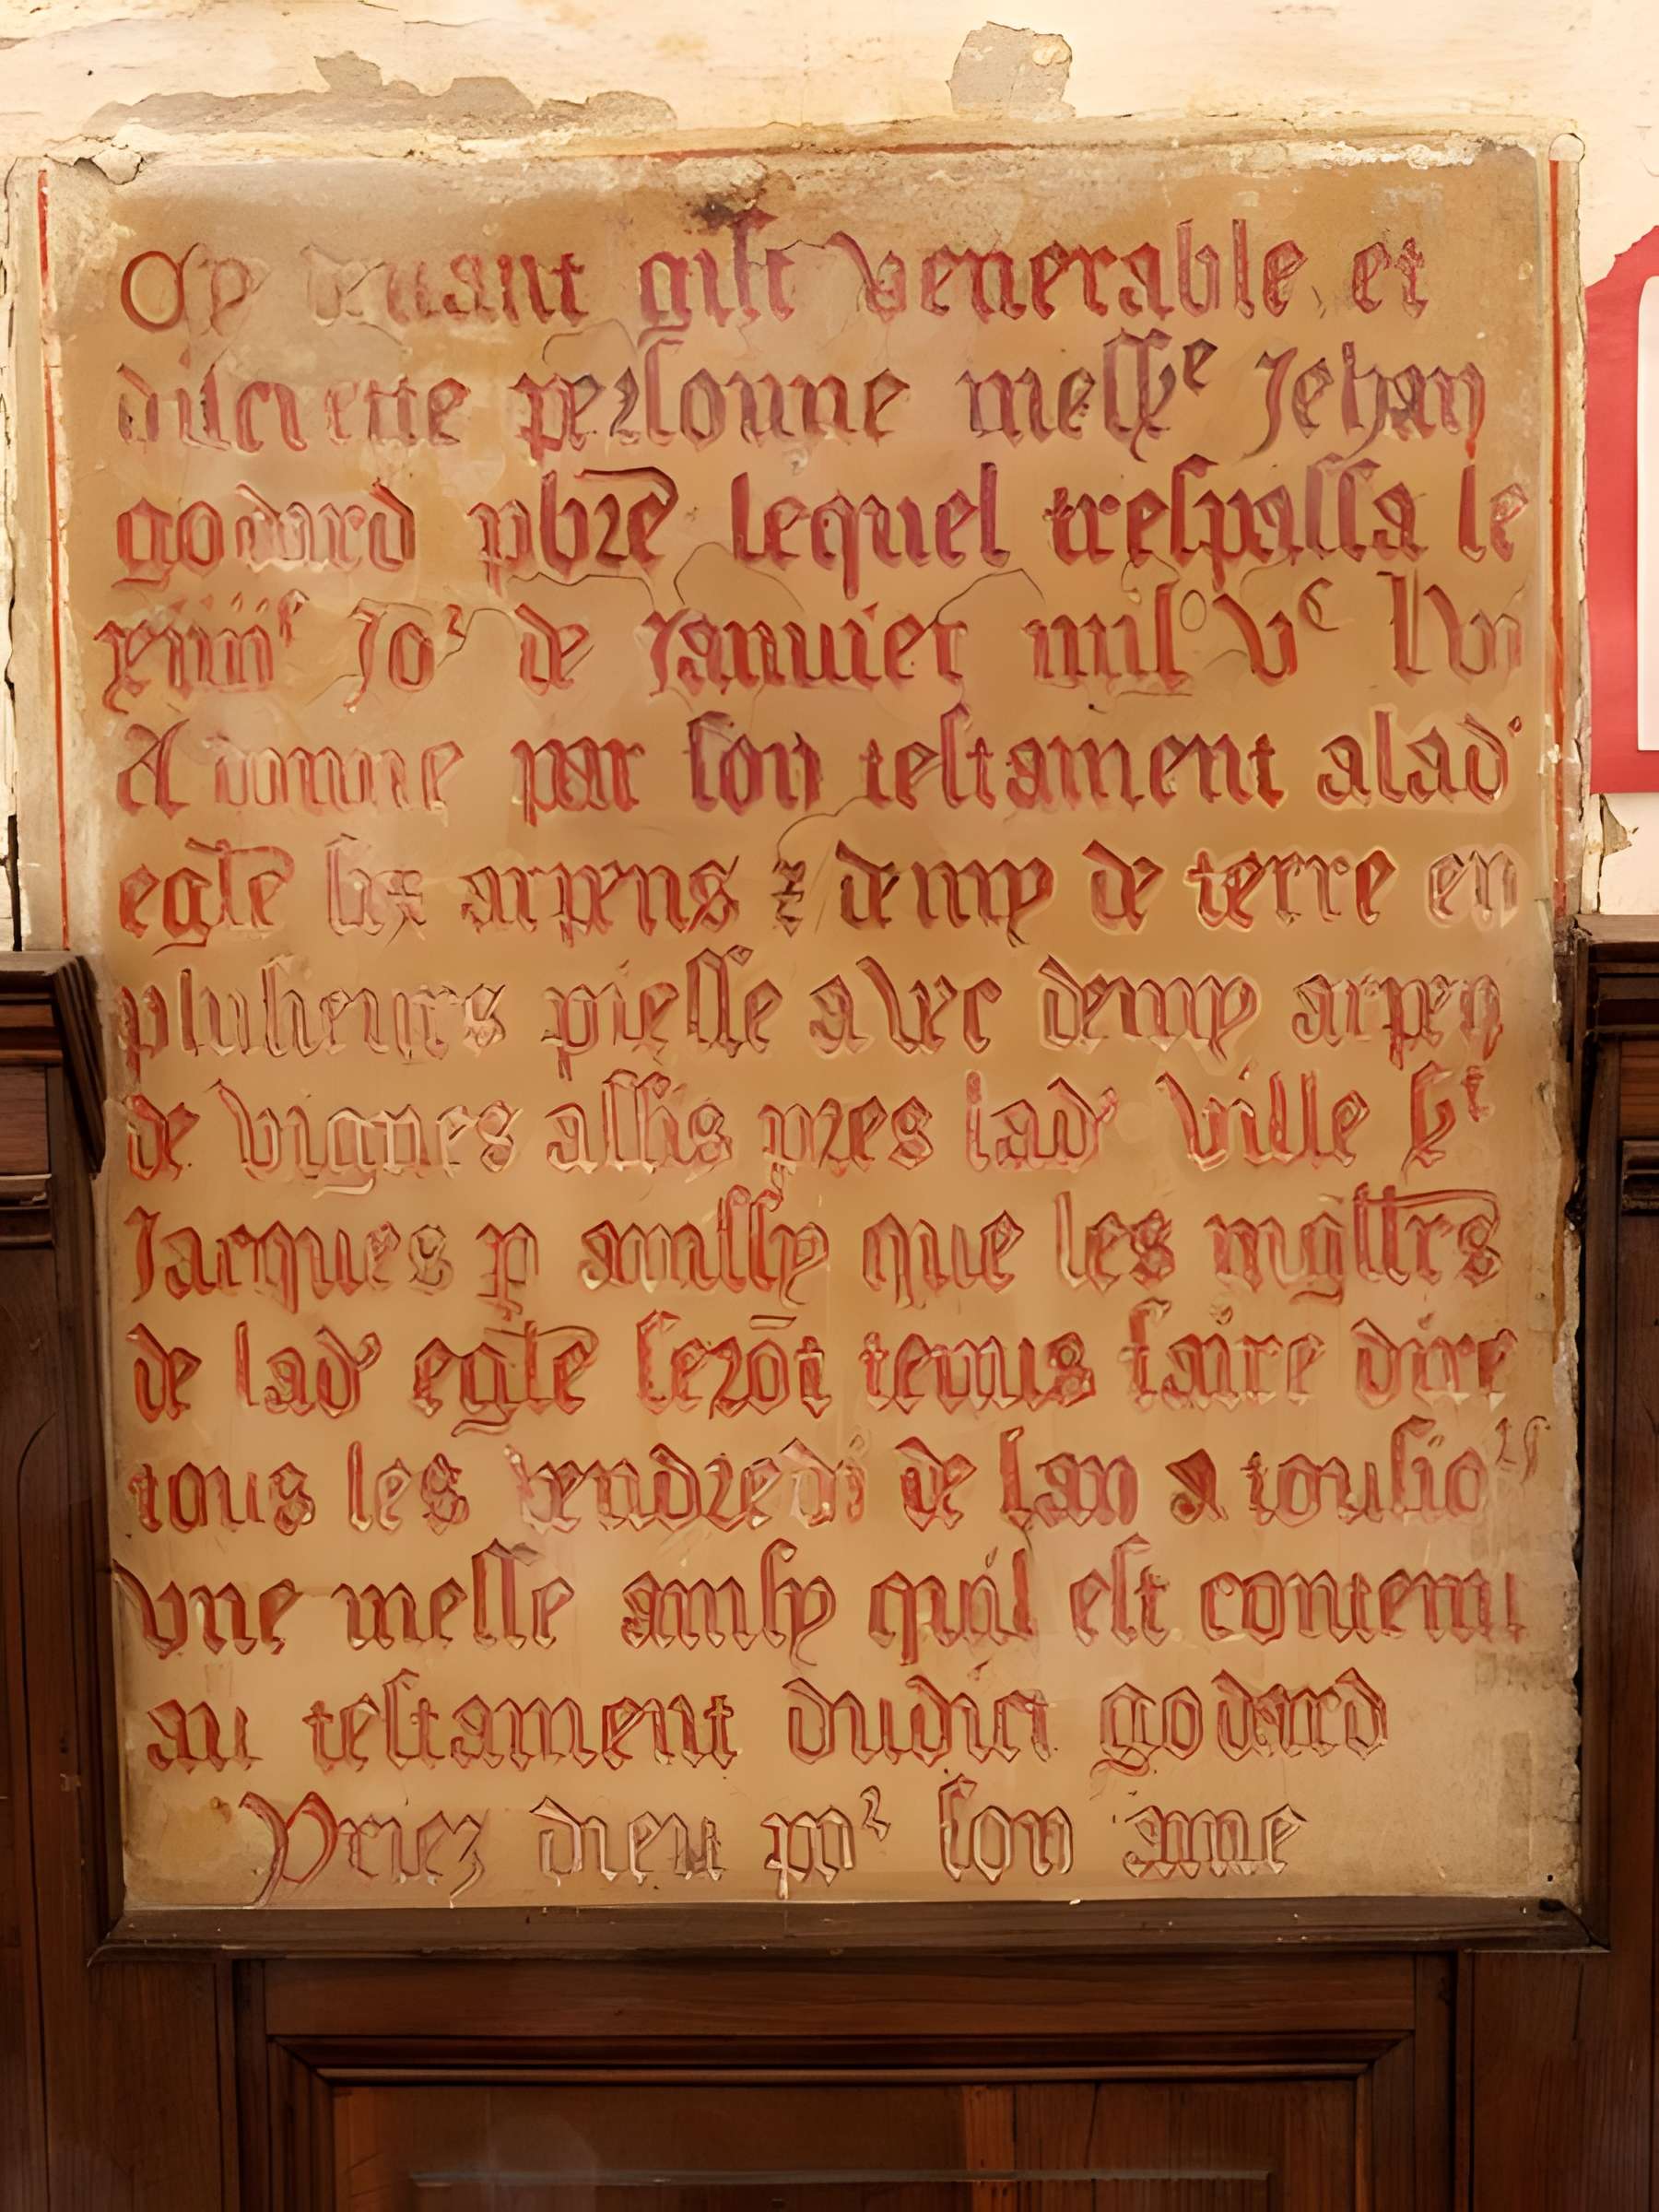 Cy devant gist venerable et
discrette personne mess^e Jehan
godard pbre lequel trespassa le
xiiii^e Jo^r de Janvier mil v^c lvi
A donne par son testament a lad'
egle six arpens & demy de terre en
plusieurs piesse avec demy arpen
de vignes assis pres lad' ville s^t
Jacques p ainssy que les mgllrs
de lad' egle seront tenus faire dire
tous les vendredi de lan a tousio^rs
vne messe ainsy quil est contenu
au testament dudict godard
Priez dieu po^r son ame